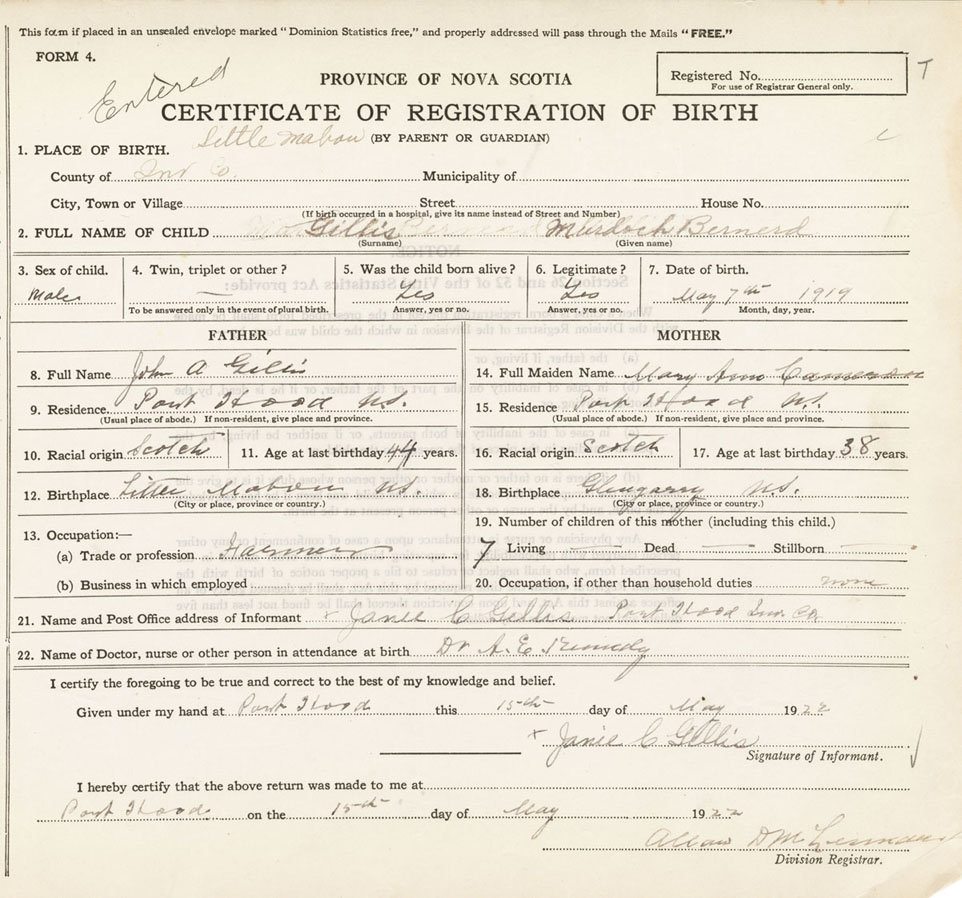 This form if placed in an unsealed envelope marked "Dominion Statistics free," and properly addressed will pass through the Mails "FREE."
FORM 4.
Entered
PROVINCE OF NOVA SCOTIA
Registered No.
For use of Registrar General only.
T
CERTIFICATE OF REGISTRATION OF BIRTH
(BY PARENT OR GUARDIAN)
1. PLACE OF BIRTH. Little Mabou
County of Inv Co. Municipality of
City, Town or Village Street House No.
(If birth occurred in a hospital, give its name instead of Street and Number)
2. FULL NAME OF CHILD Gillis Murdoch Bernerd
(Surname) (Given name)
3. Sex of child. 4. Twin, triplet or other? 5. Was the child born alive? 6. Legitimate? 7. Date of birth.
Male Yes Yes May 7th 1919
To be answered only in the event of plural birth. Answer, yes or no. Answer, yes or no. Month, day, year.
FATHER MOTHER
8. Full Name John A Gillis 14. Full Maiden Name Mary Ann Cameron
9. Residence Port Hood N.S. 15. Residence Port Hood N.S.
(Usual place of abode.) If non-resident, give place and province. (Usual place of abode.) If non-resident, give place and province.
10. Racial origin Scotch 11. Age at last birthday 44 years. 16. Racial origin Scotch 17. Age at last birthday 38 years.
12. Birthplace Little Mabou N.S. 18. Birthplace Glengarry N.S.
(City or place, province or country.) (City or place, province or country.)
13. Occupation:— 19. Number of children of this mother (including this child.)
(a) Trade or profession Farmer 7 Living Dead Stillborn
(b) Business in which employed 20. Occupation, if other than household duties none
21. Name and Post Office address of Informant x Janie C Gillis Port Hood Inv. Co
22. Name of Doctor, nurse or other person in attendance at birth Dr A. E. Kennedy
I certify the foregoing to be true and correct to the best of my knowledge and belief.
Given under my hand at Port Hood this 15th day of May 1922
x Janie C Gillis
Signature of Informant.
I hereby certify that the above return was made to me at
Port Hood on the 15th day of May 1922
Division Registrar.